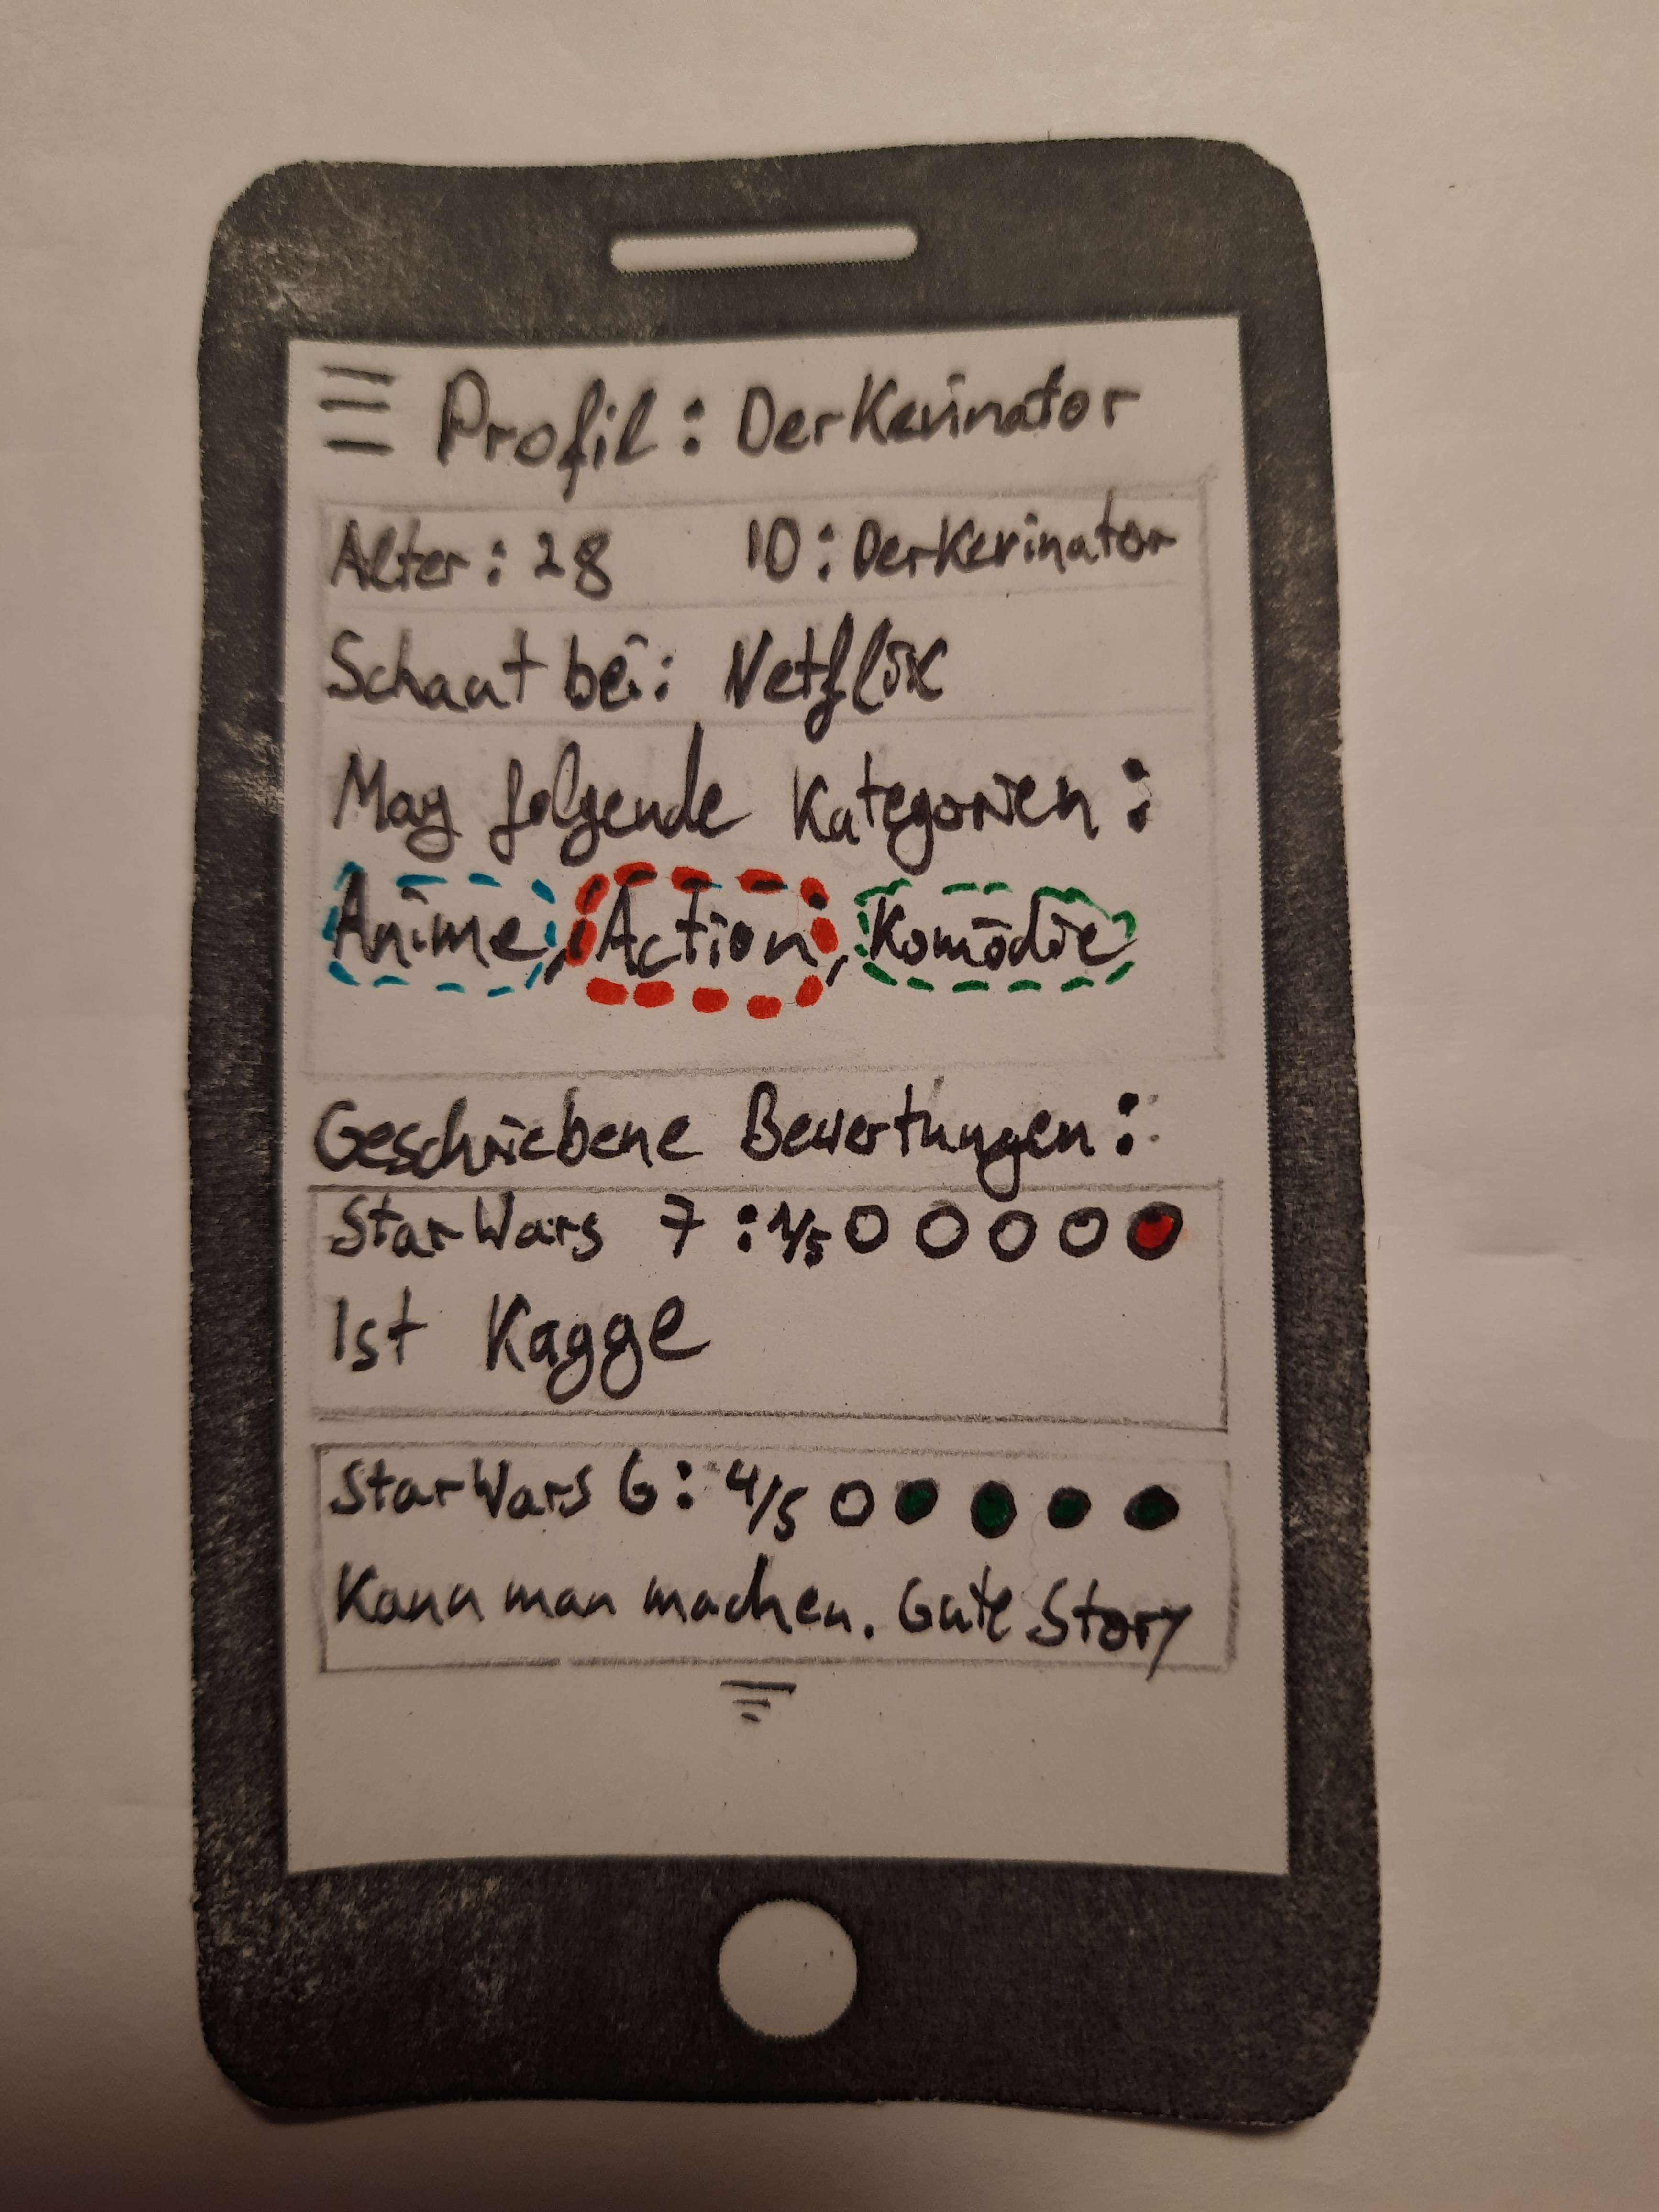 Profil: DerKevinator
Alter: 28 ID: DerKevinator
Schaut bei: Netflix
Mag folgende Kategorien:
Anime, Action, Komödie
Geschriebene Bewertungen:
Star Wars 7: 1/5
Ist Kagge
Star Wars 6: 4/5
Kann man machen. Gute Story